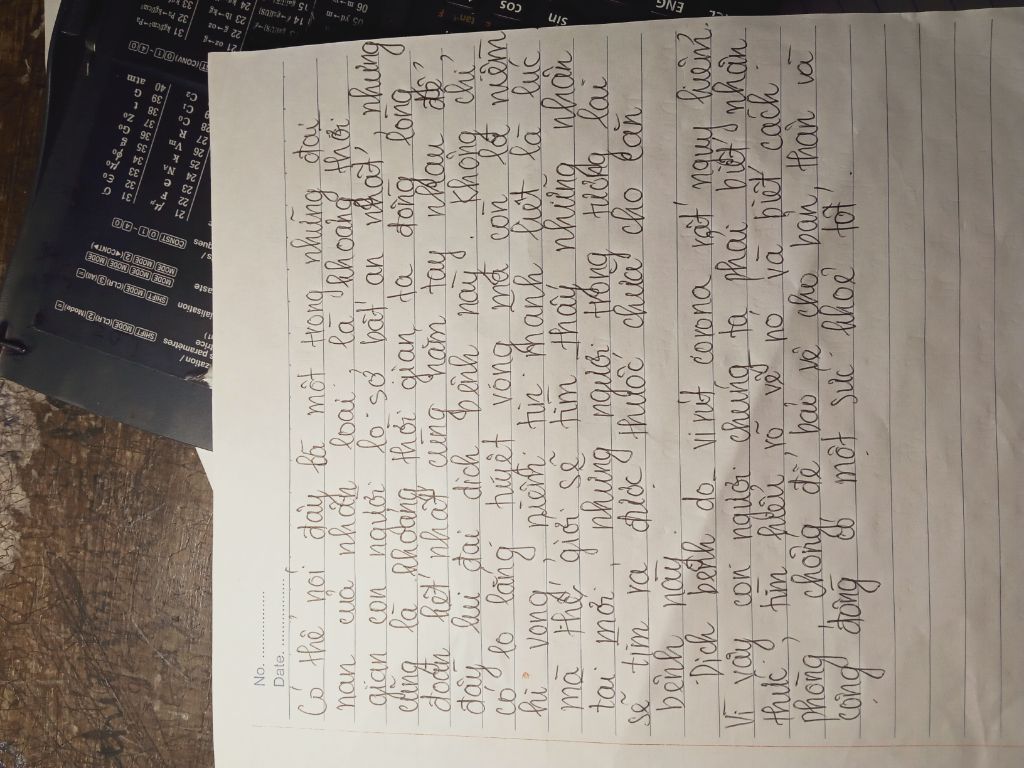 No. ............
Date. ............
Có thể nói đây là một trong những đại
nạn của nhân loại là khoảng thời
gian con người lo sợ bất an nhất, nhưng
cũng là khoảng thời gian ta đồng lòng
đoàn kết nhất cùng nắm tay nhau để
đẩy lui đại dịch bệnh này. Không chỉ
có lo lắng tuyệt vọng mà còn là niềm
hi vọng niềm tin mãnh liệt là lúc
mà thế giới sẽ tìm thấy những nhân
tài mới, những người trong tương lai
sẽ tìm ra được thuốc chữa cho căn
bệnh này.
Dịch bệnh do virut corona rất nguy hiểm.
Vì vậy con người chúng ta phải biết nhận
thức, tìm hiểu rõ về nó và biết cách
phòng chống để bảo vệ cho bản thân và
cộng đồng có một sức khoẻ tốt.
ENG
sin
cos